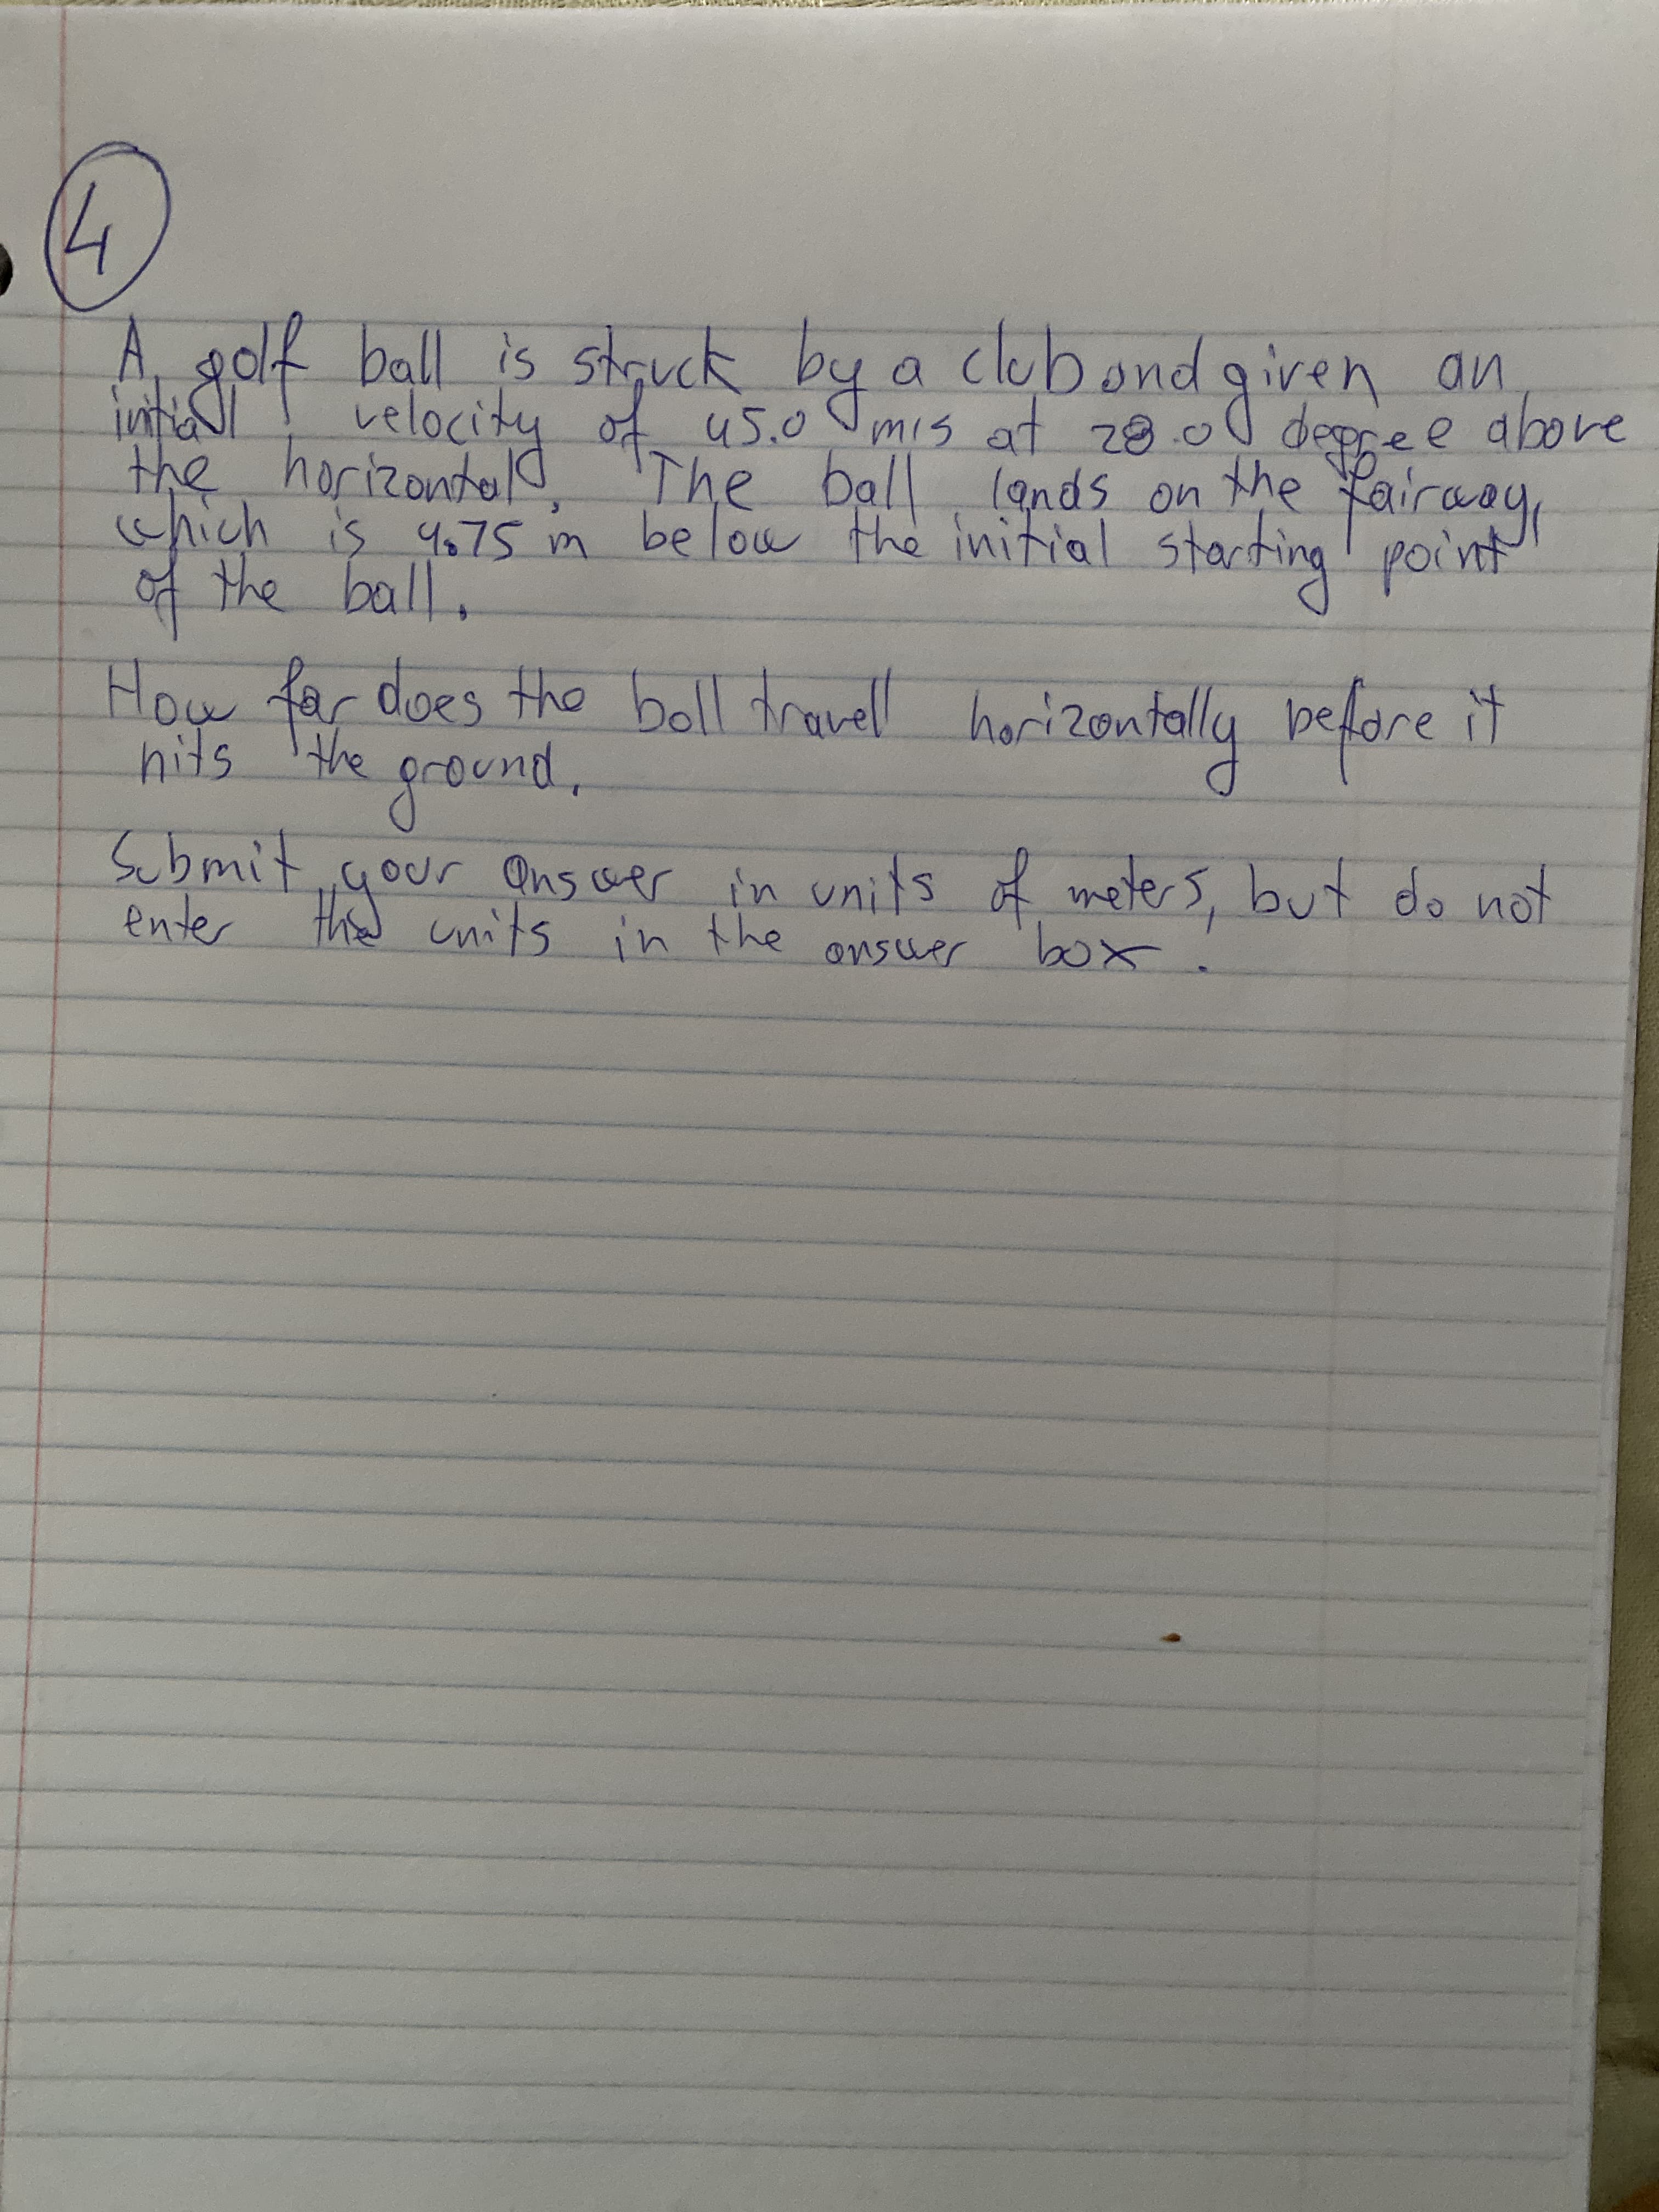 4
A golf ball is struck by a club and given an
initial velocity of 45.0 m/s at 28.0 degree above
the horizontal. The ball lands on the fairway,
which is 4.75 m below the initial starting point
of the ball.
How far does the ball travel horizontally before it
hits the ground.
Submit your answer in units of meters, but do not
enter the units in the answer box.